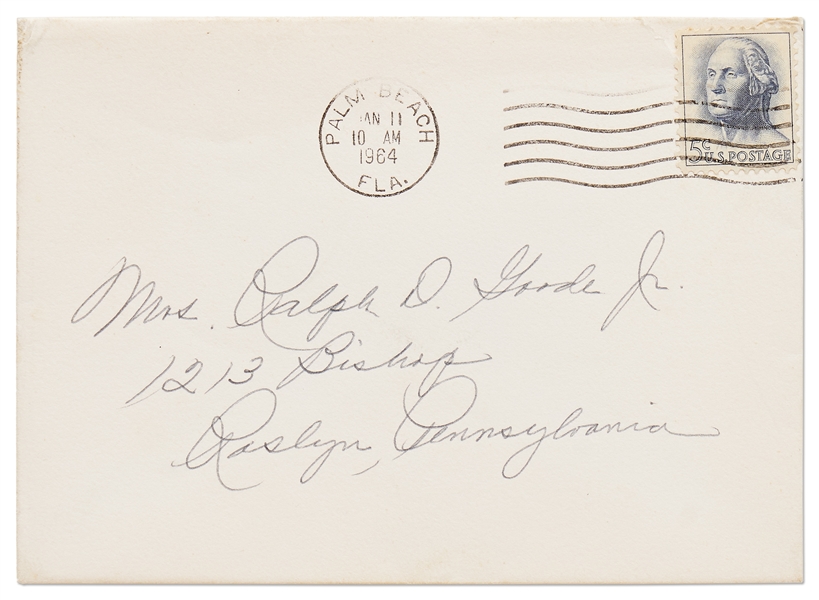 PALM BEACH
JAN 11
10 AM
1964
FLA.
5c U.S. POSTAGE
Mrs. Ralph D. Goode Jr.
1213 Bishop
Roslyn, Pennsylvania